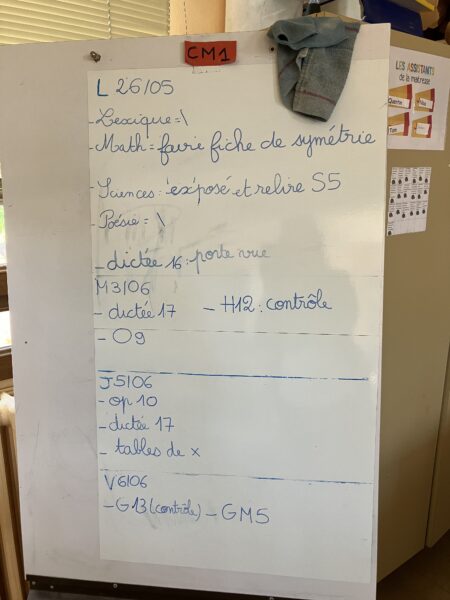 CM1
LES ASSISTANTS
de la maîtresse
L 26/05
- Lexique = \
- Math = faire fiche de symétrie
- Sciences : exposé et relire S5
- Poésie = \
- dictée 16 : porte vue
M3/06
- dictée 17 - H12 : contrôle
- O9
J5/06
- op 10
- dictée 17
- tables de x
V6/06
- G13 (contrôle) - GM5